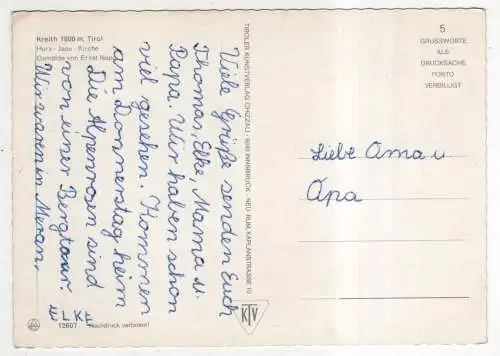 Kreith 1000 m, Tirol
Herz - Jesu - Kirche
Gemälde von Ernst
Viele Grüße senden Euch
Thomas, Elke, Mama u.
Papa. Wir haben schon
viel gesehen. Kommen
am Donnerstag heim
Die Alpenrosen sind
von einer Bergtour.
Wir waren in Meran.
ELKE
12607 Nachdruck verboten!
TIROLER KUNSTVERLAG CHIZZALI · 6040 INNSBRUCK - NEU RUM, KAPLANSTRASSE 10
KTV
5
GRUSSWORTE
ALS
DRUCKSACHE
PORTO
VERBILLIGT
Liebe Oma u
Opa